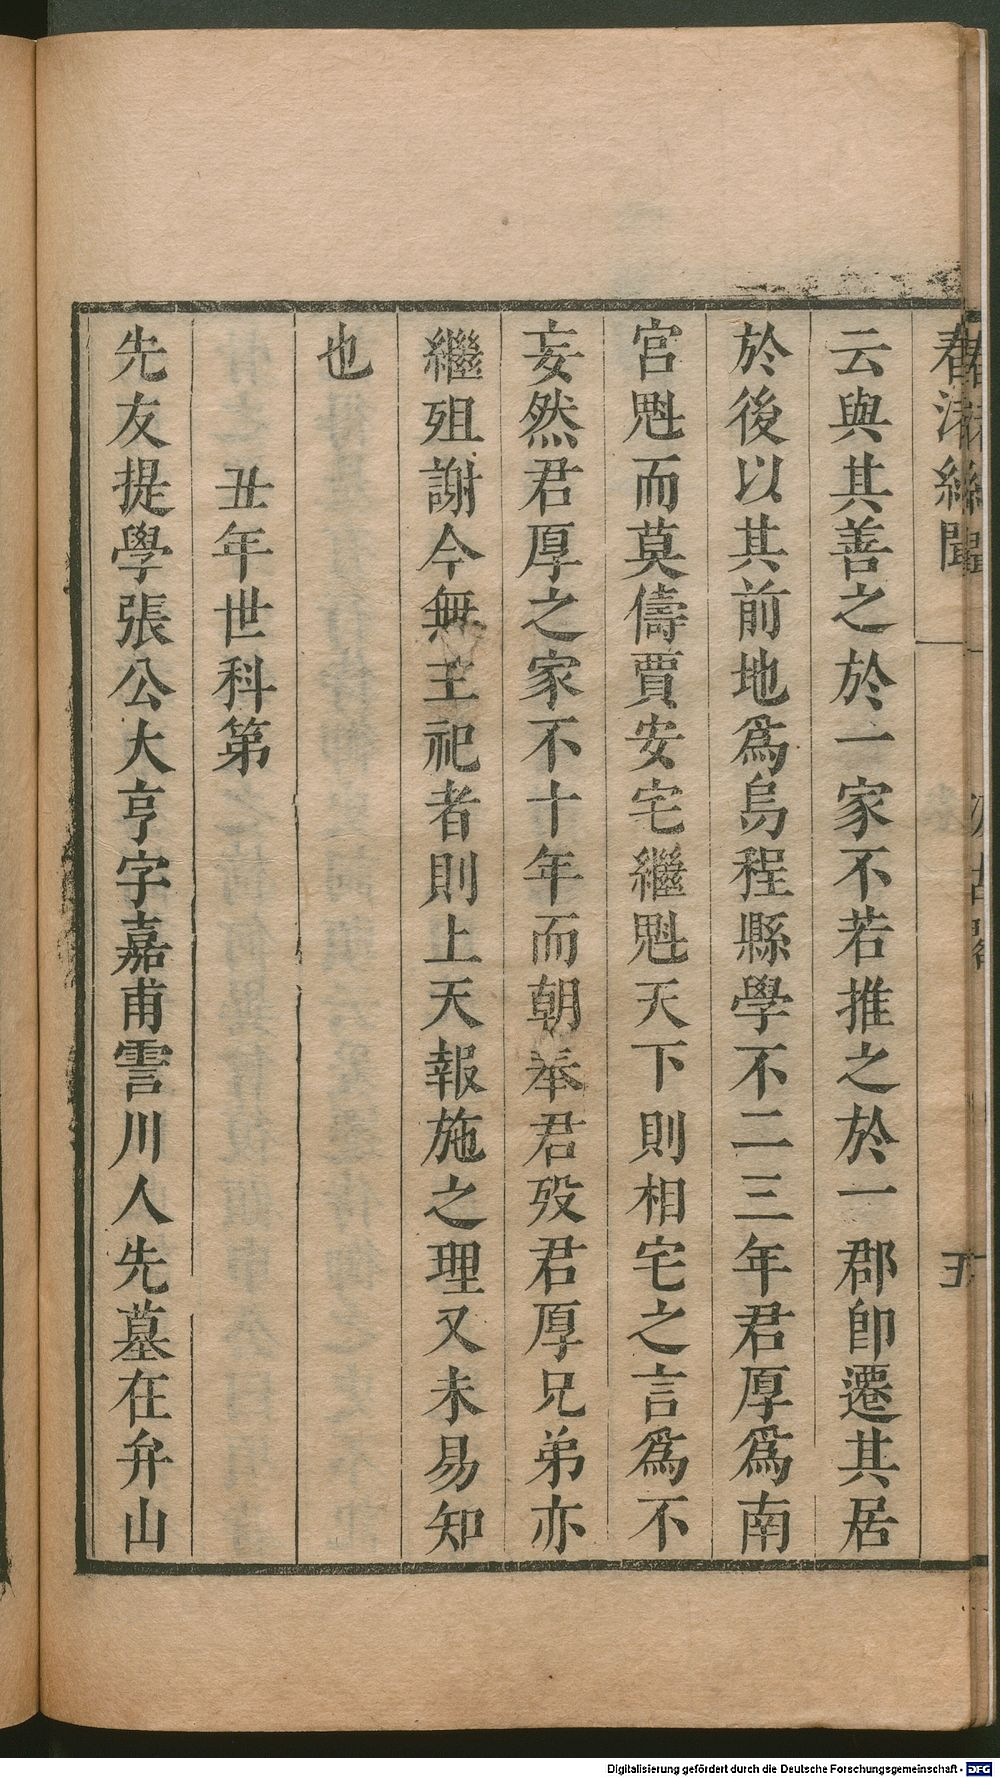 春渚紀聞
五
云與其善之於一家不若推之於一郡卽遷其居
於後以其前地爲烏程縣學不二三年君厚爲南
宮魁而莫儔賈安宅繼魁天下則相宅之言爲不
妄然君厚之家不十年而朝奉君歿君厚兄弟亦
繼殂謝今無主祀者則上天報施之理又未易知
也
丑年世科第
先友提學張公大亨字嘉甫霅川人先墓在弁山
Digitalisierung gefördert durch die Deutsche Forschungsgemeinschaft - DFG